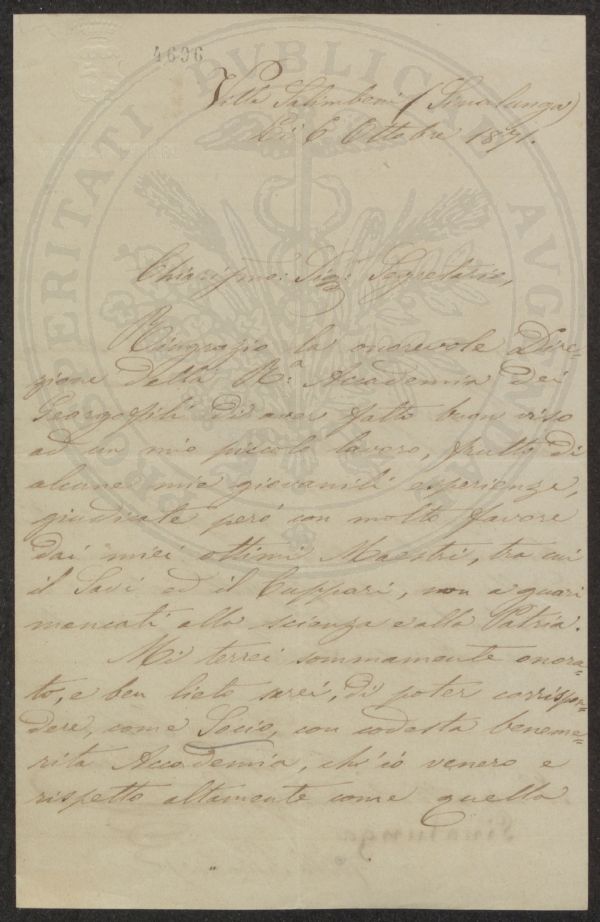 4696
Villa Salimbeni (Sinalunga)
Li 6 Ottobre 1871.
PROSPERITATI PUBLICAE AUGENDAE
Chiarissmo: Sig: Segretario,
Ringrazio la onorevole Dire-
zione della Rª Accademia dei
Georgofili di aver fatto buon viso
ad un mio piccolo lavoro, frutto di
alcune mie giovanili esperienze,
giudicate però con molto favore
dai miei ottimi Maestri, tra cui
il Savi ed il Cuppari, non a guari
mancati alla scienza e alla Patria.
Mi terrei sommamente onora-
to, e ben lieto sarei, di poter corrispon-
dere, come Socio, con codesta beneme-
rita Accademia, ch'io venero e
rispetto altamente come quella
Sinalunga